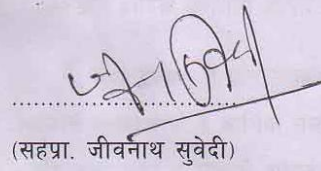 (सहप्रा. जीवनाथ सुवेदी)